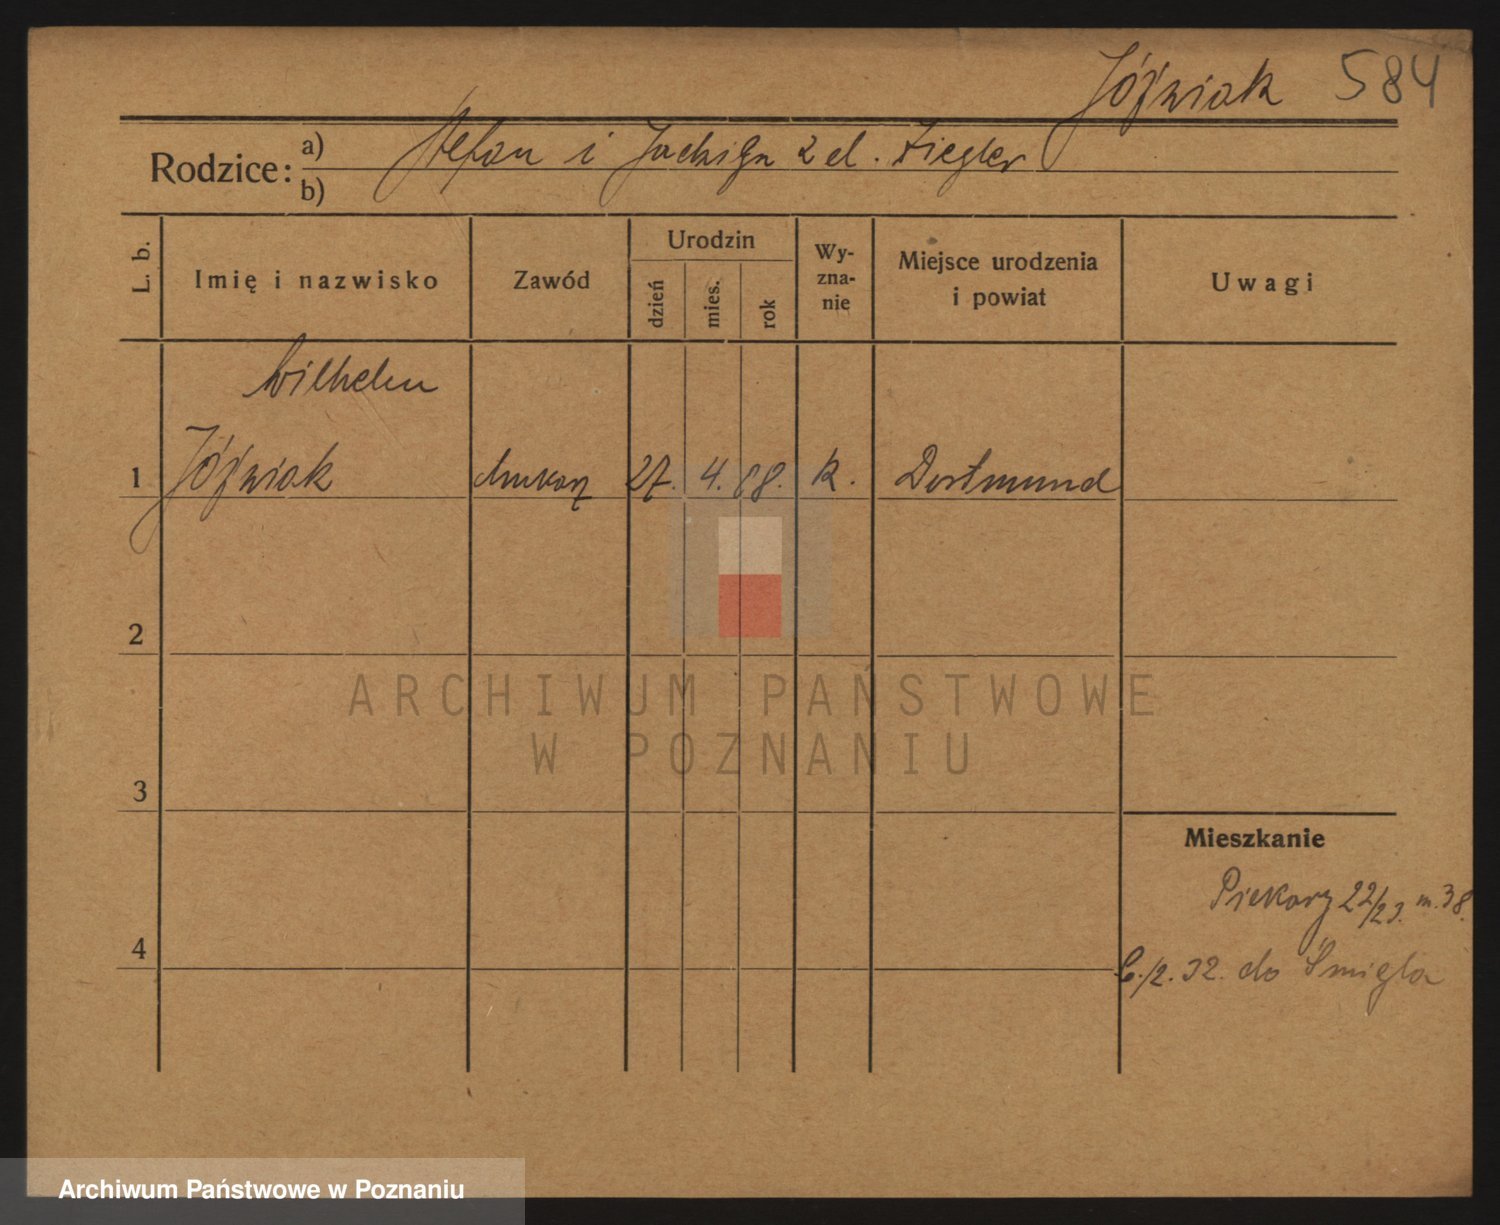 Jóźwiak 584
Rodzice: a) Stefan i Jadwiga z d. Ziegler
b)
L. b.
Imię i nazwisko
Zawód
Urodzin
dzień
mies.
rok
Wy-
zna-
nie
Miejsce urodzenia
i powiat
Uwagi
Wilhelm
1 Jóźwiak drukarz 27. 4. 88. k. Dortmund
2
3
Mieszkanie
Piekary 22/23. m. 38.
4
6./2. 32. do Śmigla
ARCHIWUM PAŃSTWOWE
W POZNANIU
Archiwum Państwowe w Poznaniu